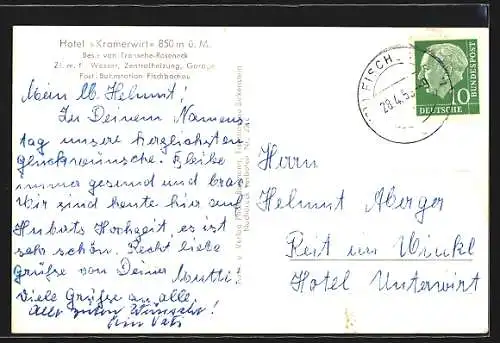 Hotel »Kramerwirt« 850 m ü. M.
Bes.: von Transehe-Roseneck
Zi. m. fl. Wasser, Zentralheizung, Garage
Post, Bahnstation Fischbachau
Mein lb. Helmut!
Zu Deinem Namens
tag unsere herzlichsten
Glückwünsche. Bleibe
immer gesund und brav
Wir sind heute hier auf
Huberts Hochzeit, es ist
sehr schön. Recht liebe
Grüße von Deiner Mutti!
Viele Grüße an alle,
Alles guten Wünsche!
Dein Vati
Verlag
FISCH
28.4.5
10
DEUTSCHE
BUNDESPOST
Herrn
Helmut Aberger
Reit im Winkl
Hotel Unterwirt